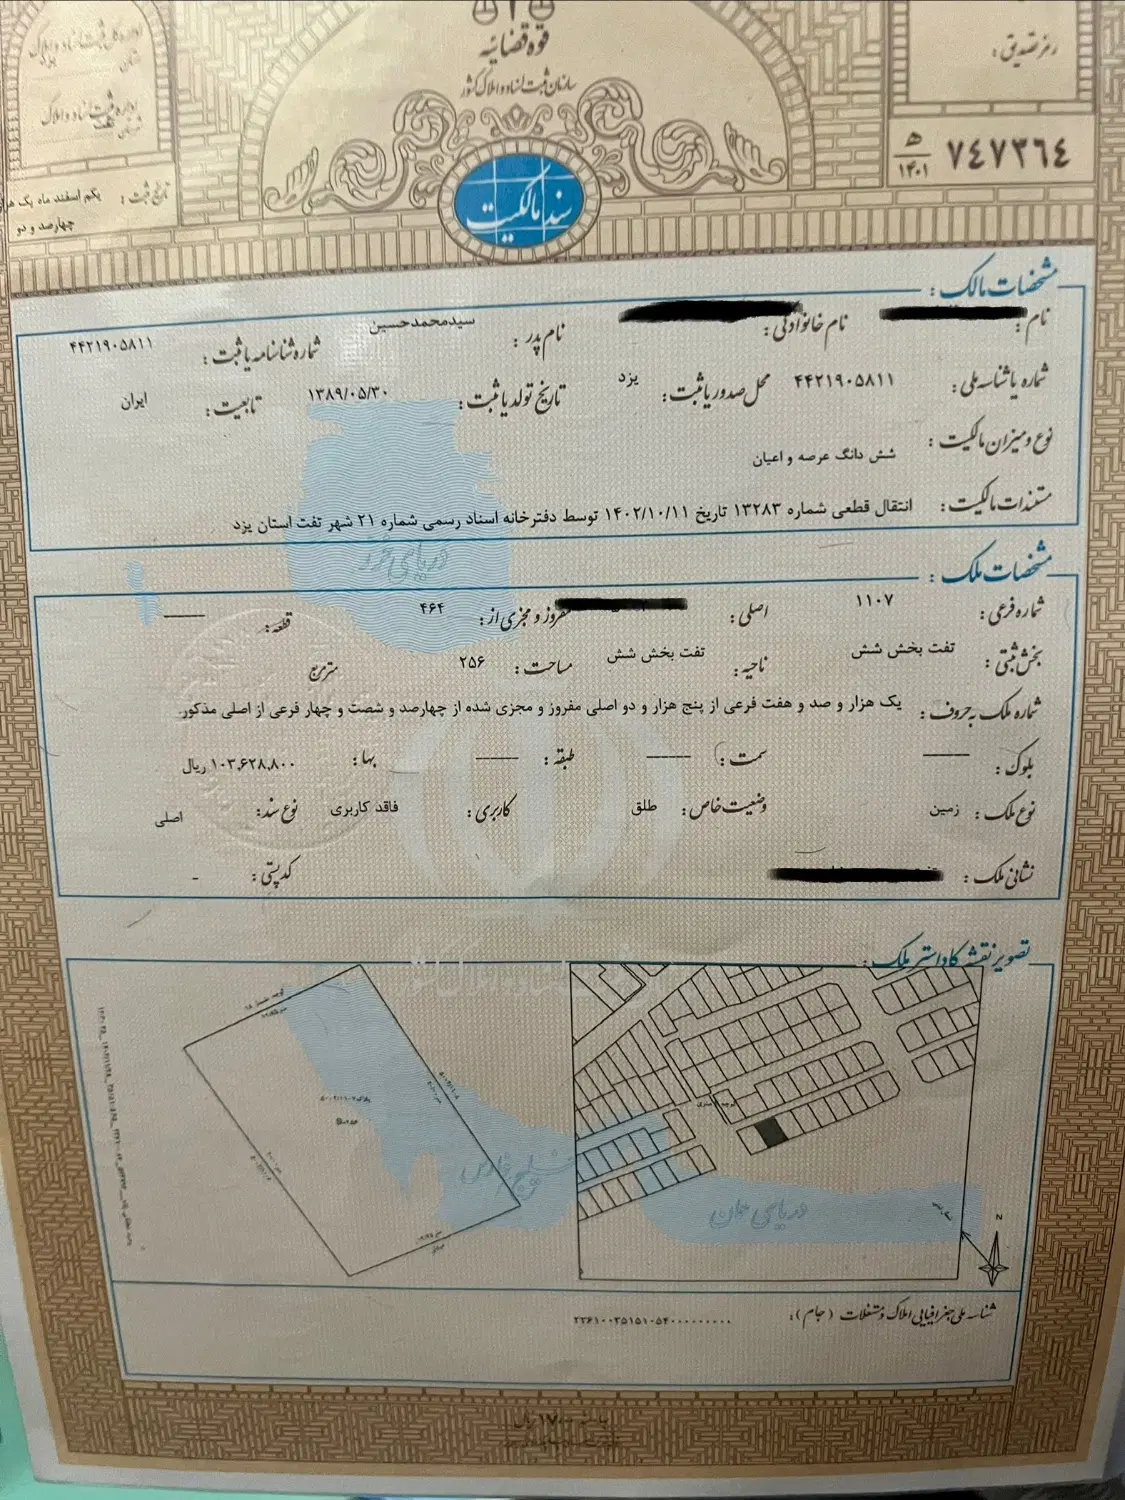 قوه قضائیه
سازمان ثبت اسناد و املاک کشور
اداره کل ثبت اسناد و املاک
استان
یزد
اداره ثبت اسناد و املاک
شهرستان
تفت
رمز تصدیق :
ه‍ / ۱۴۰۱ ۷۴۷۳۶۴
تاریخ ثبت : یکم اسفند ماه یک هزار
چهارصد و دو
سند مالکیت
مشخصات مالک :
نام : نام خانوادگی : نام پدر : سیدمحمدحسین شماره شناسنامه یا ثبت : ۴۴۲۱۹۰۵۸۱۱
شماره یا شناسه ملی : ۴۴۲۱۹۰۵۸۱۱ محل صدور یا ثبت : یزد تاریخ تولد یا ثبت : ۱۳۸۹/۰۵/۳۰ تابعیت : ایران
نوع و میزان مالکیت : شش دانگ عرصه و اعیان
مستندات مالکیت : انتقال قطعی شماره ۱۳۲۸۳ تاریخ ۱۴۰۲/۱۰/۱۱ توسط دفترخانه اسناد رسمی شماره ۲۱ شهر تفت استان یزد
دریای خزر
مشخصات ملک :
شماره فرعی : ۱۱۰۷ اصلی : مفروز و مجزی از : ۴۶۴ قطعه :
بخش ثبتی : تفت بخش شش ناحیه : تفت بخش شش مساحت : ۲۵۶ متر مربع
شماره ملک به حروف : یک هزار و صد و هفت فرعی از پنج هزار و دو اصلی مفروز و مجزی شده از چهارصد و شصت و چهار فرعی از اصلی مذکور.
بلوک : سمت : طبقه : بها : ۱۰۳,۶۲۸,۸۰۰ ریال
نوع ملک : زمین وضعیت خاص : طلق کاربری : فاقد کاربری نوع سند : اصلی
نشانی ملک : کد پستی : -
تصویر نقشه کاداستر ملک :
خلیج فارس
دریای عمان
N
شناسه ملی جغرافیایی املاک و مستغلات (جام) :